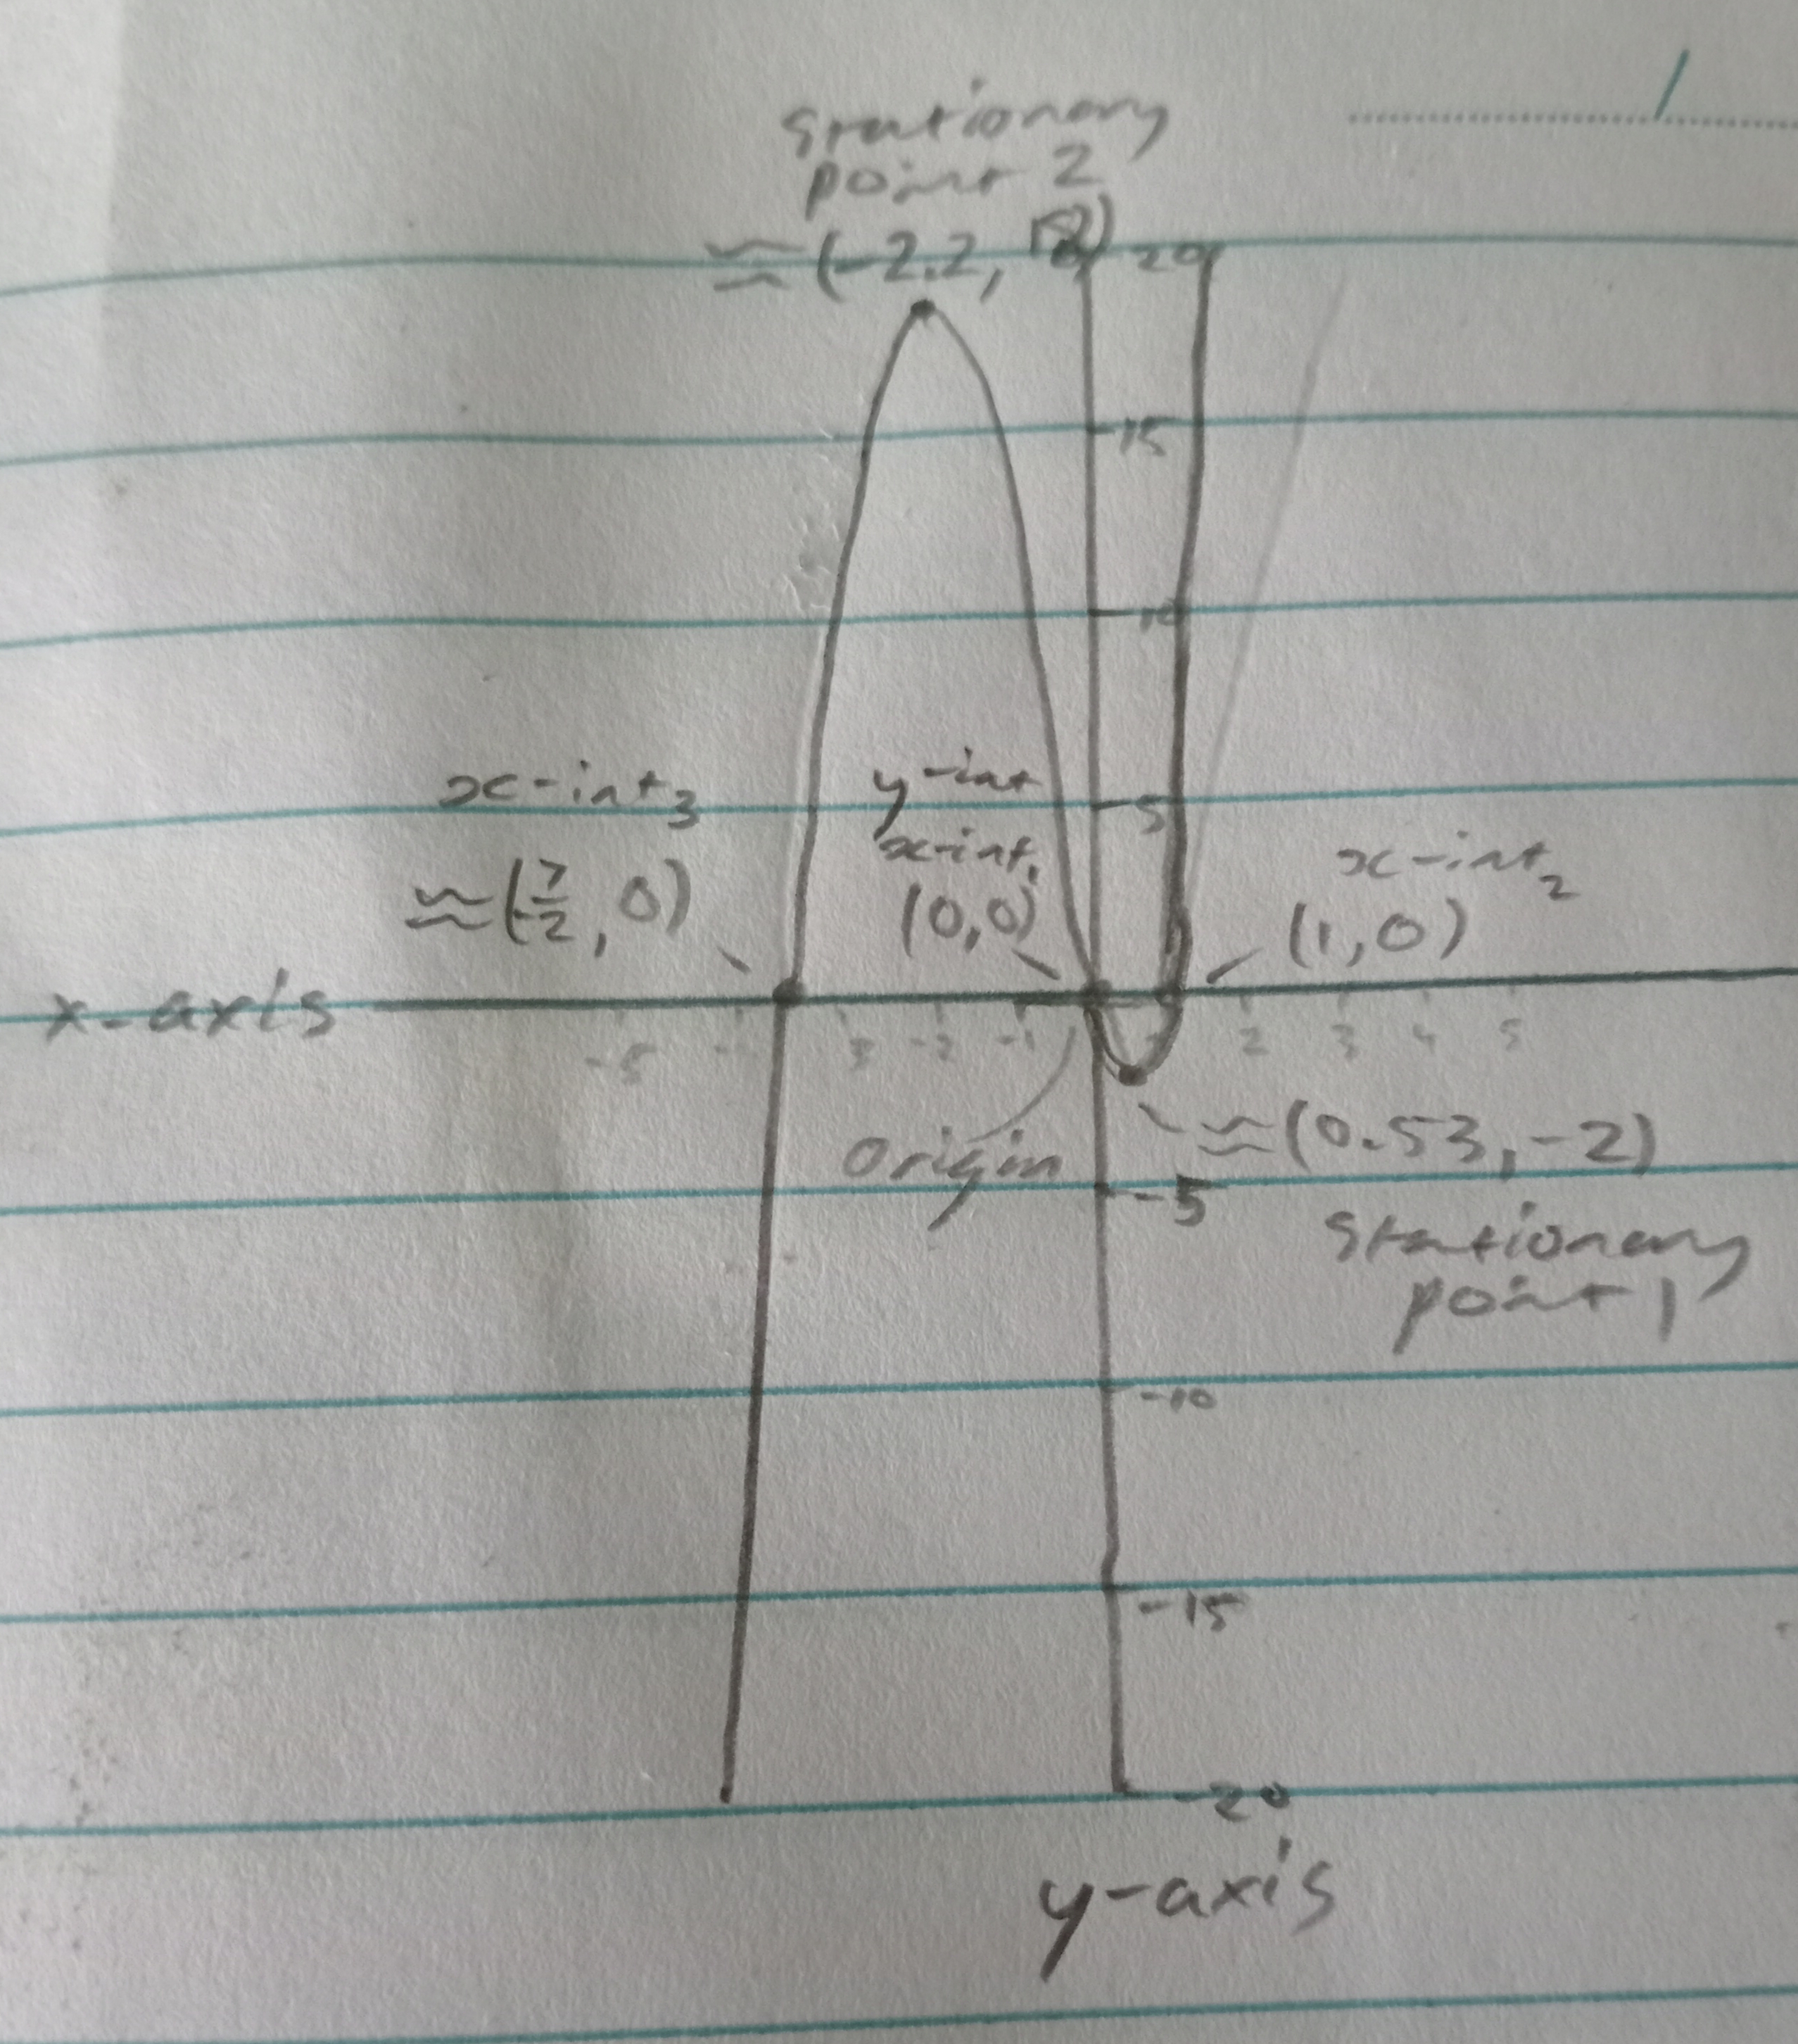 Stationary
point 2
≈(-2.2, 18)
20
15
10
5
x-int₃
≈(-7/2, 0)
y-int
x-int₁
(0,0)
x-int₂
(1,0)
x-axis
-5 3 -2 -1 2 3 4 5
Origin
≈(0.53, -2)
-5
Stationary
point 1
-10
-15
-20
y-axis